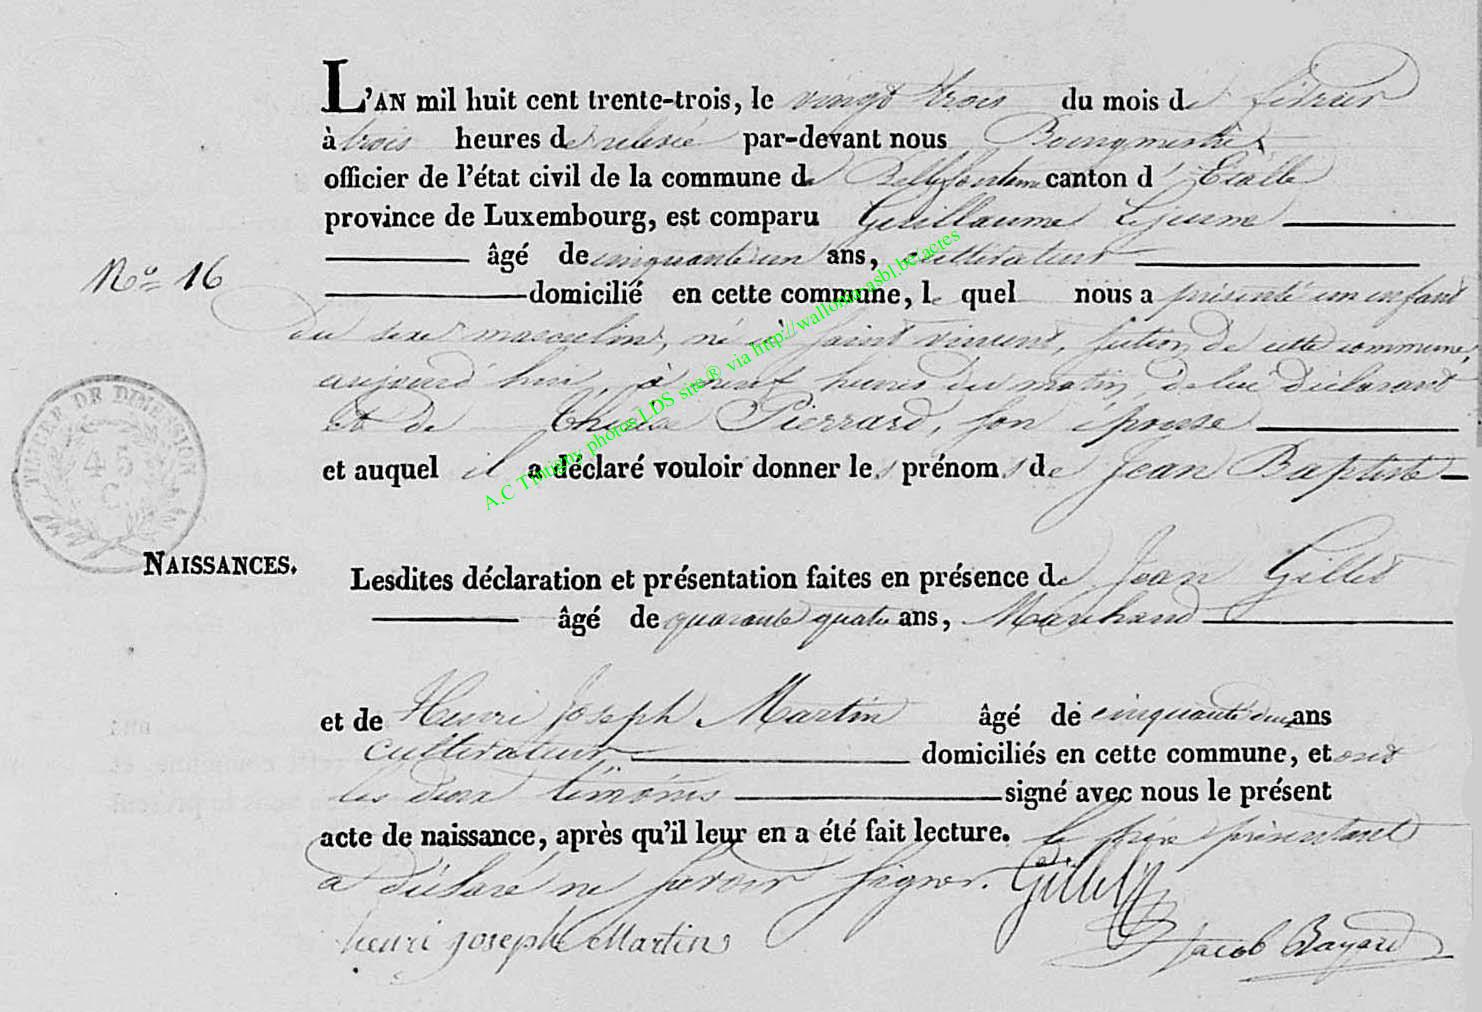 L'AN mil huit cent trente-trois, le vingt trois du mois de février
à trois heures de relevée par-devant nous Bourgmestre
officier de l'état civil de la commune de Bellefontaine canton d' Etalle
province de Luxembourg, est comparu Guillaume Lejeune
âgé de cinquante un ans, cultivateur
N.o 16
domicilié en cette commune, le quel nous a présenté un enfant
du sexe masculin, né à Saint vincent, section de cette commune,
aujourd'hui, à neuf heures du matin, de lui déclarant
Et de Thérèse Pierrard, son épouse
et auquel il a déclaré vouloir donner les prénoms de Jean Baptiste
TIMBRE DE DIMENSION
45
C
NAISSANCES.
Lesdites déclaration et présentation faites en présence de Jean Gillet
âgé de quarante quatre ans, Marchand
et de Henri Joseph Martin âgé de cinquante deux ans
cultivateur, domiciliés en cette commune, et ont
les deux témoins signé avec nous le présent
acte de naissance, après qu'il leur en a été fait lecture. le père présentant
a déclaré ne savoir signer. Gillet
henri joseph Martin Jacob Bayard
A.C Tintigny photos LDS site ® via http://wallonia-asbl.be/actes